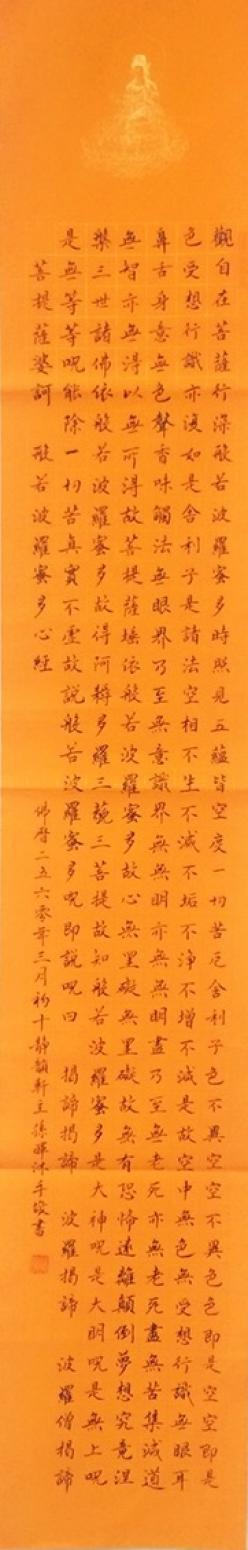 觀自在菩薩行深般若波羅蜜多時照見五蘊皆空度一切苦厄舍利子色不異空空不異色色即是空空即是
色受想行識亦復如是舍利子是諸法空相不生不滅不垢不淨不增不減是故空中無色無受想行識無眼耳
鼻舌身意無色聲香味觸法無眼界乃至無意識界無無明亦無無明盡乃至無老死亦無老死盡無苦集滅道
無智亦無得以無可得故菩提薩埵依般若波羅蜜多故心無罣礙無罣礙故無有恐怖遠離顛倒夢想究竟涅
槃三世諸佛依般若波羅蜜多故得阿耨多羅三藐三菩提故知般若波羅蜜多是大神呪是大明呪是無上呪
是無等等呪能除一切苦真實不虛故說般若波羅蜜多呪即說呪曰 揭諦揭諦 波羅揭諦 波羅僧揭諦
菩提薩婆訶 般若波羅蜜多心經
佛曆二五六零年三月初十靜韻軒主孫暉沐手敬書